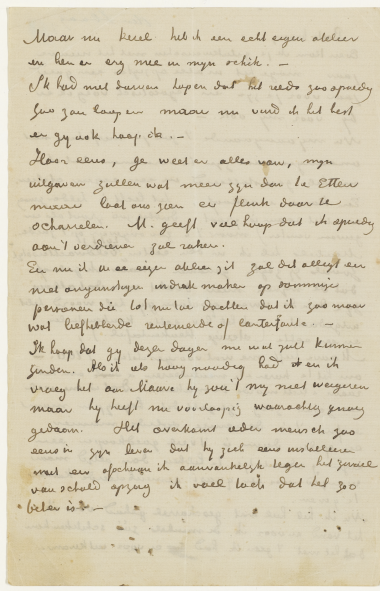 Maar nu kerel heb ik een echt eigen atelier
en ben er erg mee in mijn schik. –
Ik had niet durven hopen dat het reeds zoo spoedig
zoo zou loopen maar nu vind ik het best
en gij ook hoop ik. –
Hoor eens, ge weet er alles van, mijn
uitgaven zullen wat meer zijn dan te Etten
maar laat ons zien er flink door te
scharrelen. M. geeft veel hoop dat ik spoedig
aan't verdienen zal raken.
En nu ik in een eigen atelier zit zal dit allegt een
niet ongunstigen indruk maken op sommige
personen die tot nu toe dachten dat ik zoo maar
wat liefhebberde renteneerde of lanterfantte. –
Ik hoop dat gij dezer dagen me wat zult kunnen
zenden. Als ik het hoog noodig had en ik
vroeg het aan Mauve hij zou't mij niet weigeren
maar hij heeft nu voorloopig waarachtig genoeg
gedaan. Het overkomt ieder mensch zoo
eens in zijn leven dat hij zich eens installeeren
moet en ofschoon ik aanvankelijk tegen het
van schuld opzag ik voel toch dat het zoo
beter is. –